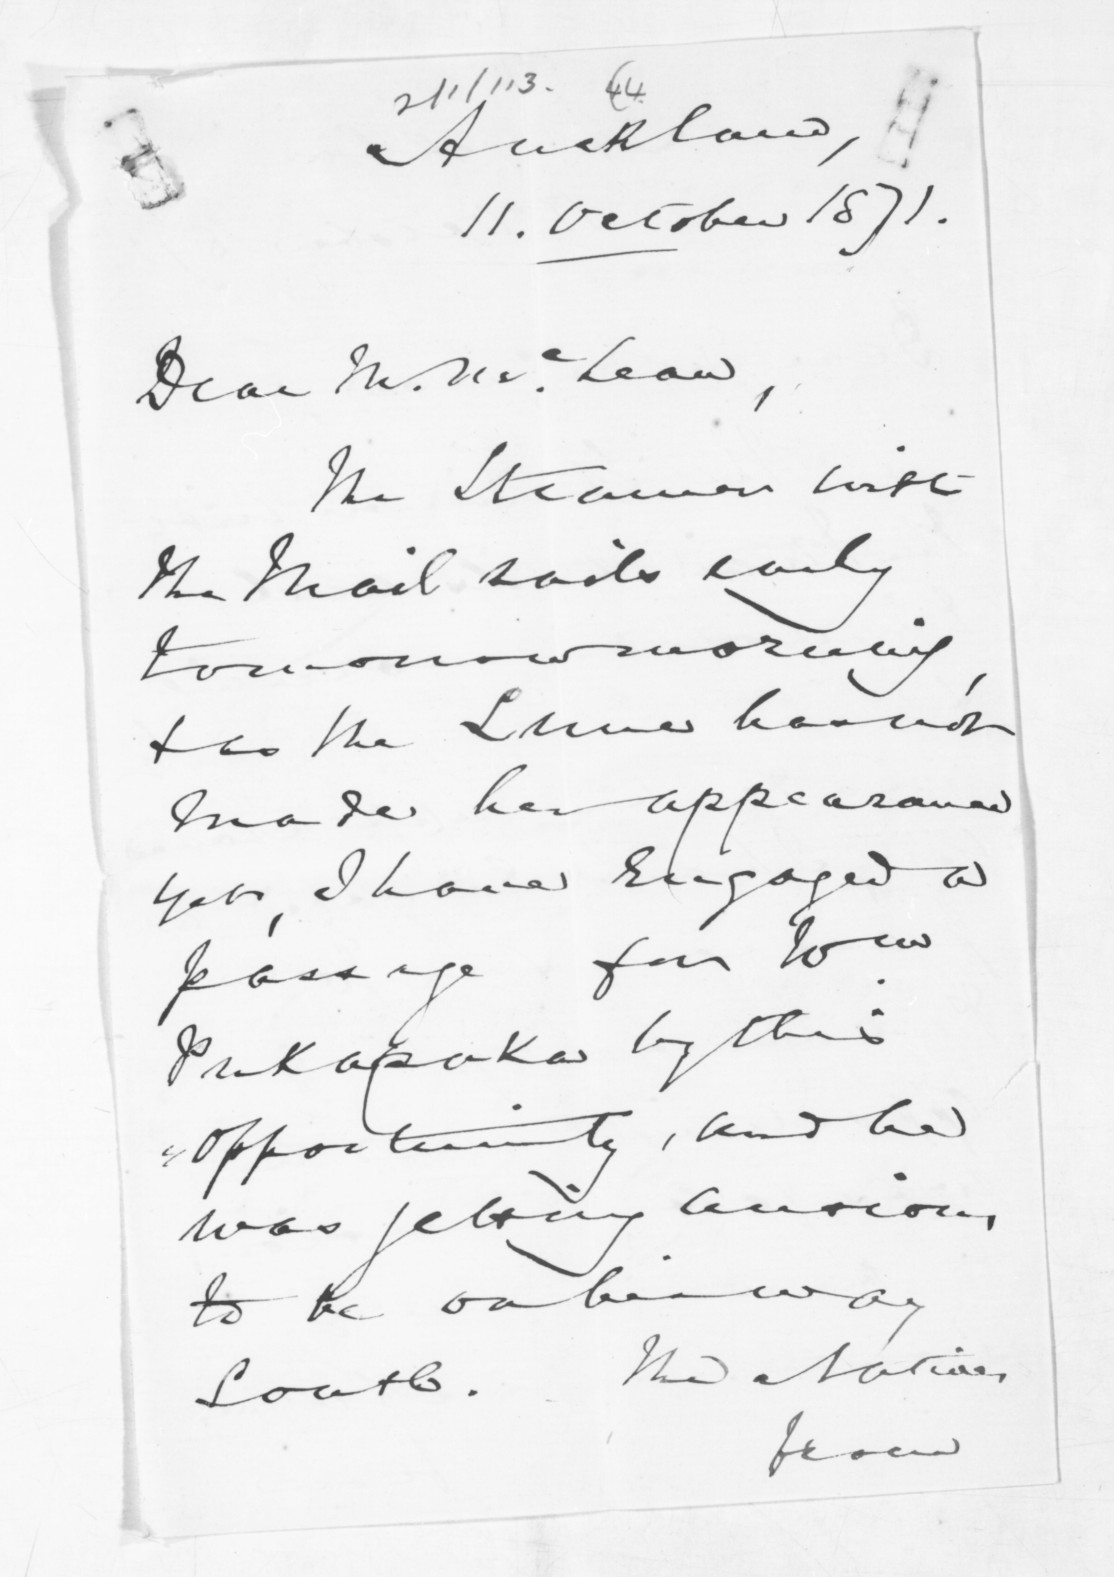 2/1/113. 44.
Auckland,
11. October 1871.
Dear Mr. McLean,
The Steamer with
the Mail sails early
tomorrow morning,
& as the Luna has not
made her appearance
yet, I have Engaged a
passage for Wm
Pukapuka by this
opportunity, and he
was getting anxious
to be on his way
South. The Natives
from